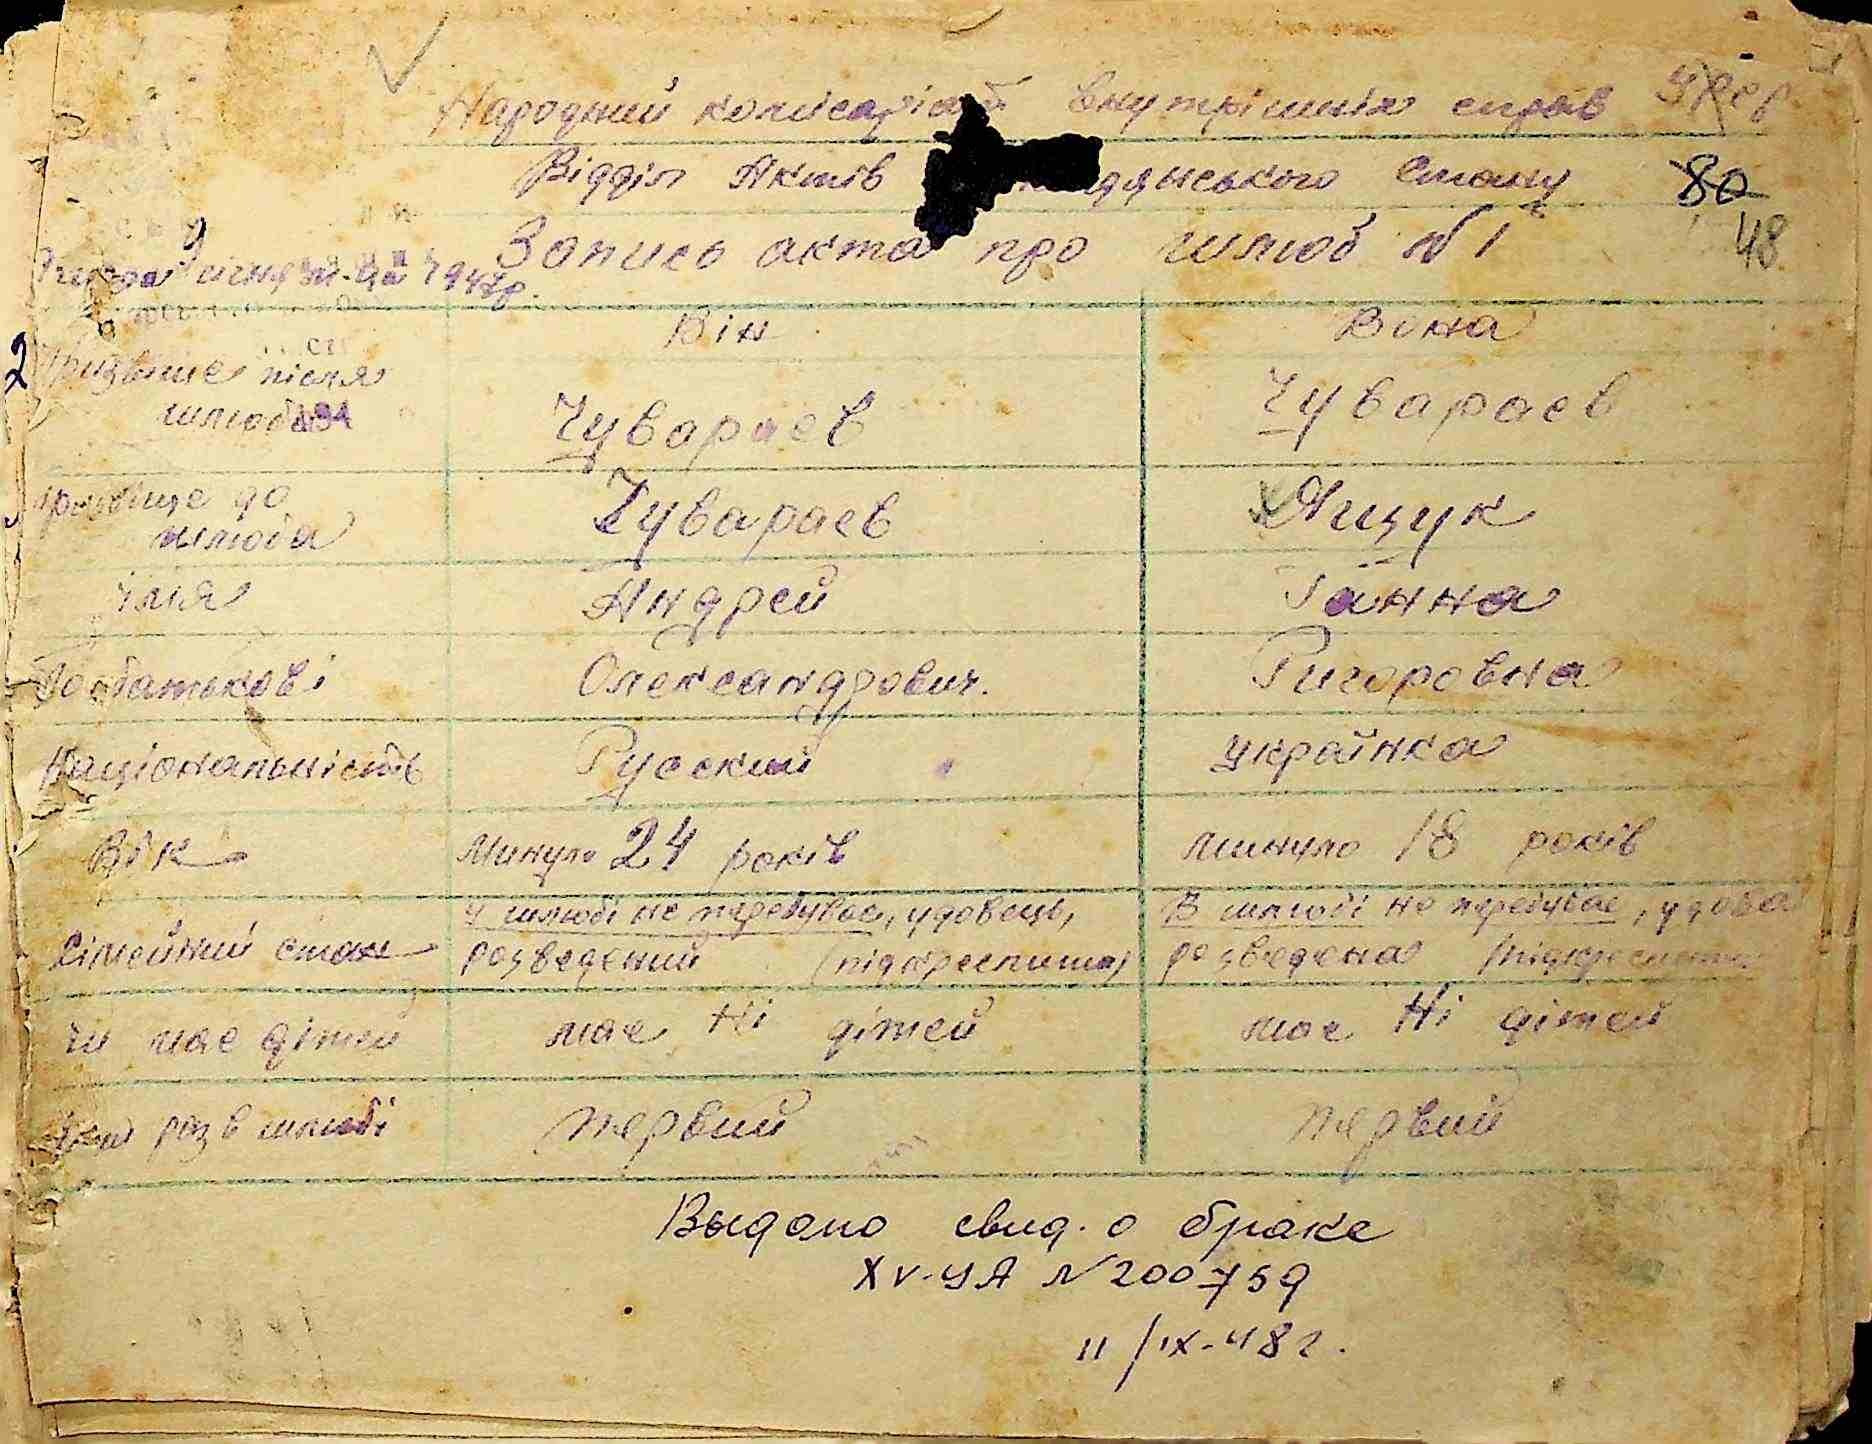 Народний комісаріат внутрішніх справ УРСР
Відділ Актів дянського Стану 80
Запись акта про шлюб N 1 48
9 січня м-ця 194
Він Вона
2 Прізвище після
шлюба Чувараев Чувараев
Прізвище до
шлюба Чувараев Ящук
Імя Андрей Ганна
По батькові Олександрович. Ригоровна
Національність Русский Українка
Вік Минуло 24 років минуло 18 років
Сімейний стан У шлюбі не перебуває, удовець, В шлюбі не перебуває, удова
розведений (підкреслити) розведена (підкреслити)
Чи має дітей має Ні дітей має Ні дітей
раз в шлюбі первий первий
Выдано свид. о браке
XV-УА N 200759
11/IX-48 г.